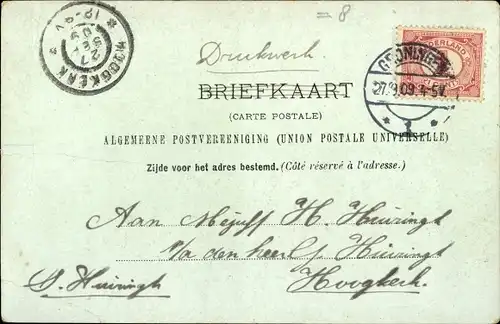 =8
Drukwerk.
HOOGKERK
27 SEP 09
GRONINGEN
27.9.09 4-5V
NEDERLAND
BRIEFKAART
(CARTE POSTALE)
ALGEMEENE POSTVEREENIGING (UNION POSTALE UNIVERSELLE)
Zijde voor het adres bestemd. (Côté réservé à l'adresse.)
Aan Mejuff H. Huizingh
p/a den heer P. Huizingh
S. Huizingh
Hoogkerk.